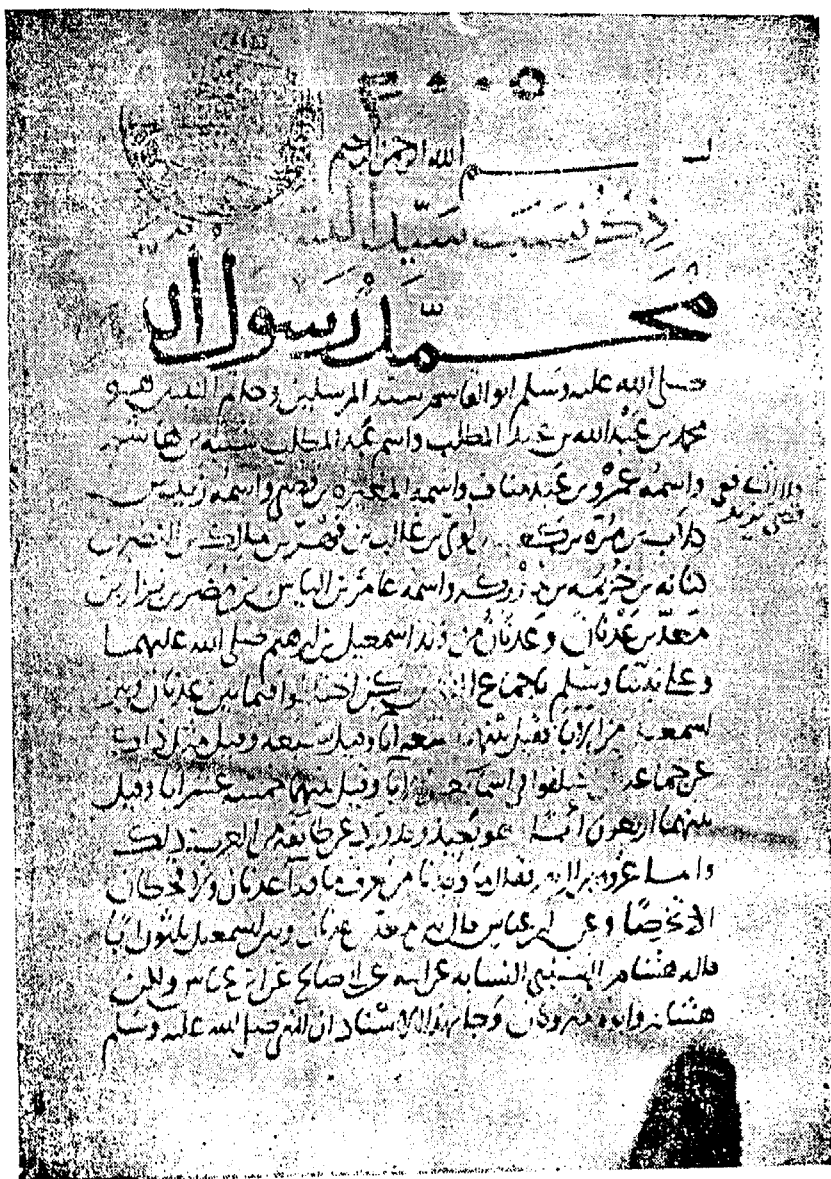 بسم الله الرحمن الرحيم
ذكر نسب سيد
محمد رسول الله
صلى الله عليه وسلم ابو القاسم سيد المرسلين وخاتم النبيين هو
محمد بن عبد الله بن عبد المطلب واسم عبد المطلب شيبه بن هاشم
واسمه عمرو بن عبد مناف واسمه المغيره بن قصي واسمه زيد بن
كلاب بن مره بن كعب بن لوي بن غالب بن فهر بن مالك بن النضر بن
كنانه بن خزيمه بن مدركه واسمه عامر بن الياس بن مضر بن نزار بن
معد بن عدنان وعدنان من ولد اسمعيل بن ابرهيم صلى الله عليهما
وعلى نبينا وسلم باجماع الناس لكن اختلفوا فيما بين عدنان وبين
اسمعيل من الابا فقيل بينهما تسعه ابا وقيل سبعه وقيل مثل ذلك
عن جماعه اختلفوا في اسما بعض الابا وقيل بينهما خمسه عشر ابا وقيل
بينهما اربعون ابا وهو بعيد وقد ورد عن طايفه من العرب ذلك
واما عروه بن الزبير فقال ما وجدنا من يعرف ما ورا عدنان ولا قحطان
الا تخرصا وعن ابن عباس قال بين معد بن عدنان وبين اسمعيل ثلثون ابا
قاله هشام بن الكلبي النسابه عن ابيه عن ابي صالح عن ابن عباس ولكن
هشام وابوه متروكان وجا بهذا الاسناد ان النبي صلى الله عليه وسلم